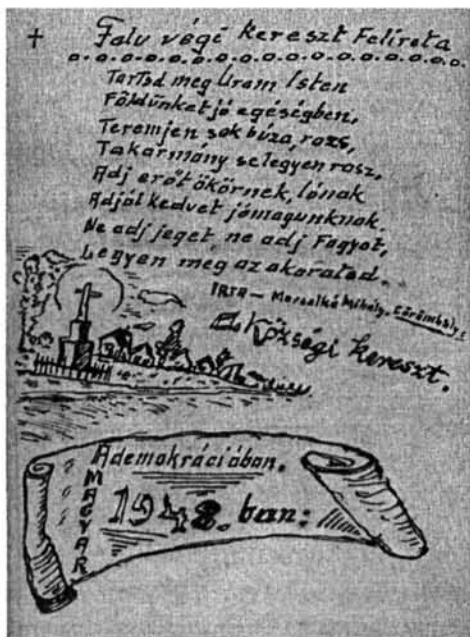 Falu végi kereszt Felirata
Tartsd meg Uram Isten
Földünket jó egéségben,
Teremjen sok búza, rozs,
Takarmány se legyen rosz,
Adj erőt ökörnek, lónak
Adjál kedvet jómagunknak.
Ne adj jeget, ne adj Fagyot,
Legyen meg az akaratod.
IRTA — Morsalkó Mihály.
A községi kereszt.
A demokráciában.
MAGYAR
1948. ban: